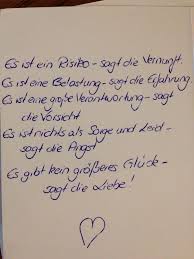 Es ist ein Risiko - sagt die Vernunft.
Es ist eine Belastung - sagt die Erfahrung.
Es ist eine große Verantwortung - sagt
die Vorsicht
Es ist nichts als Sorge und Leid -
sagt die Angst
Es gibt kein größeres Glück -
sagt die Liebe!